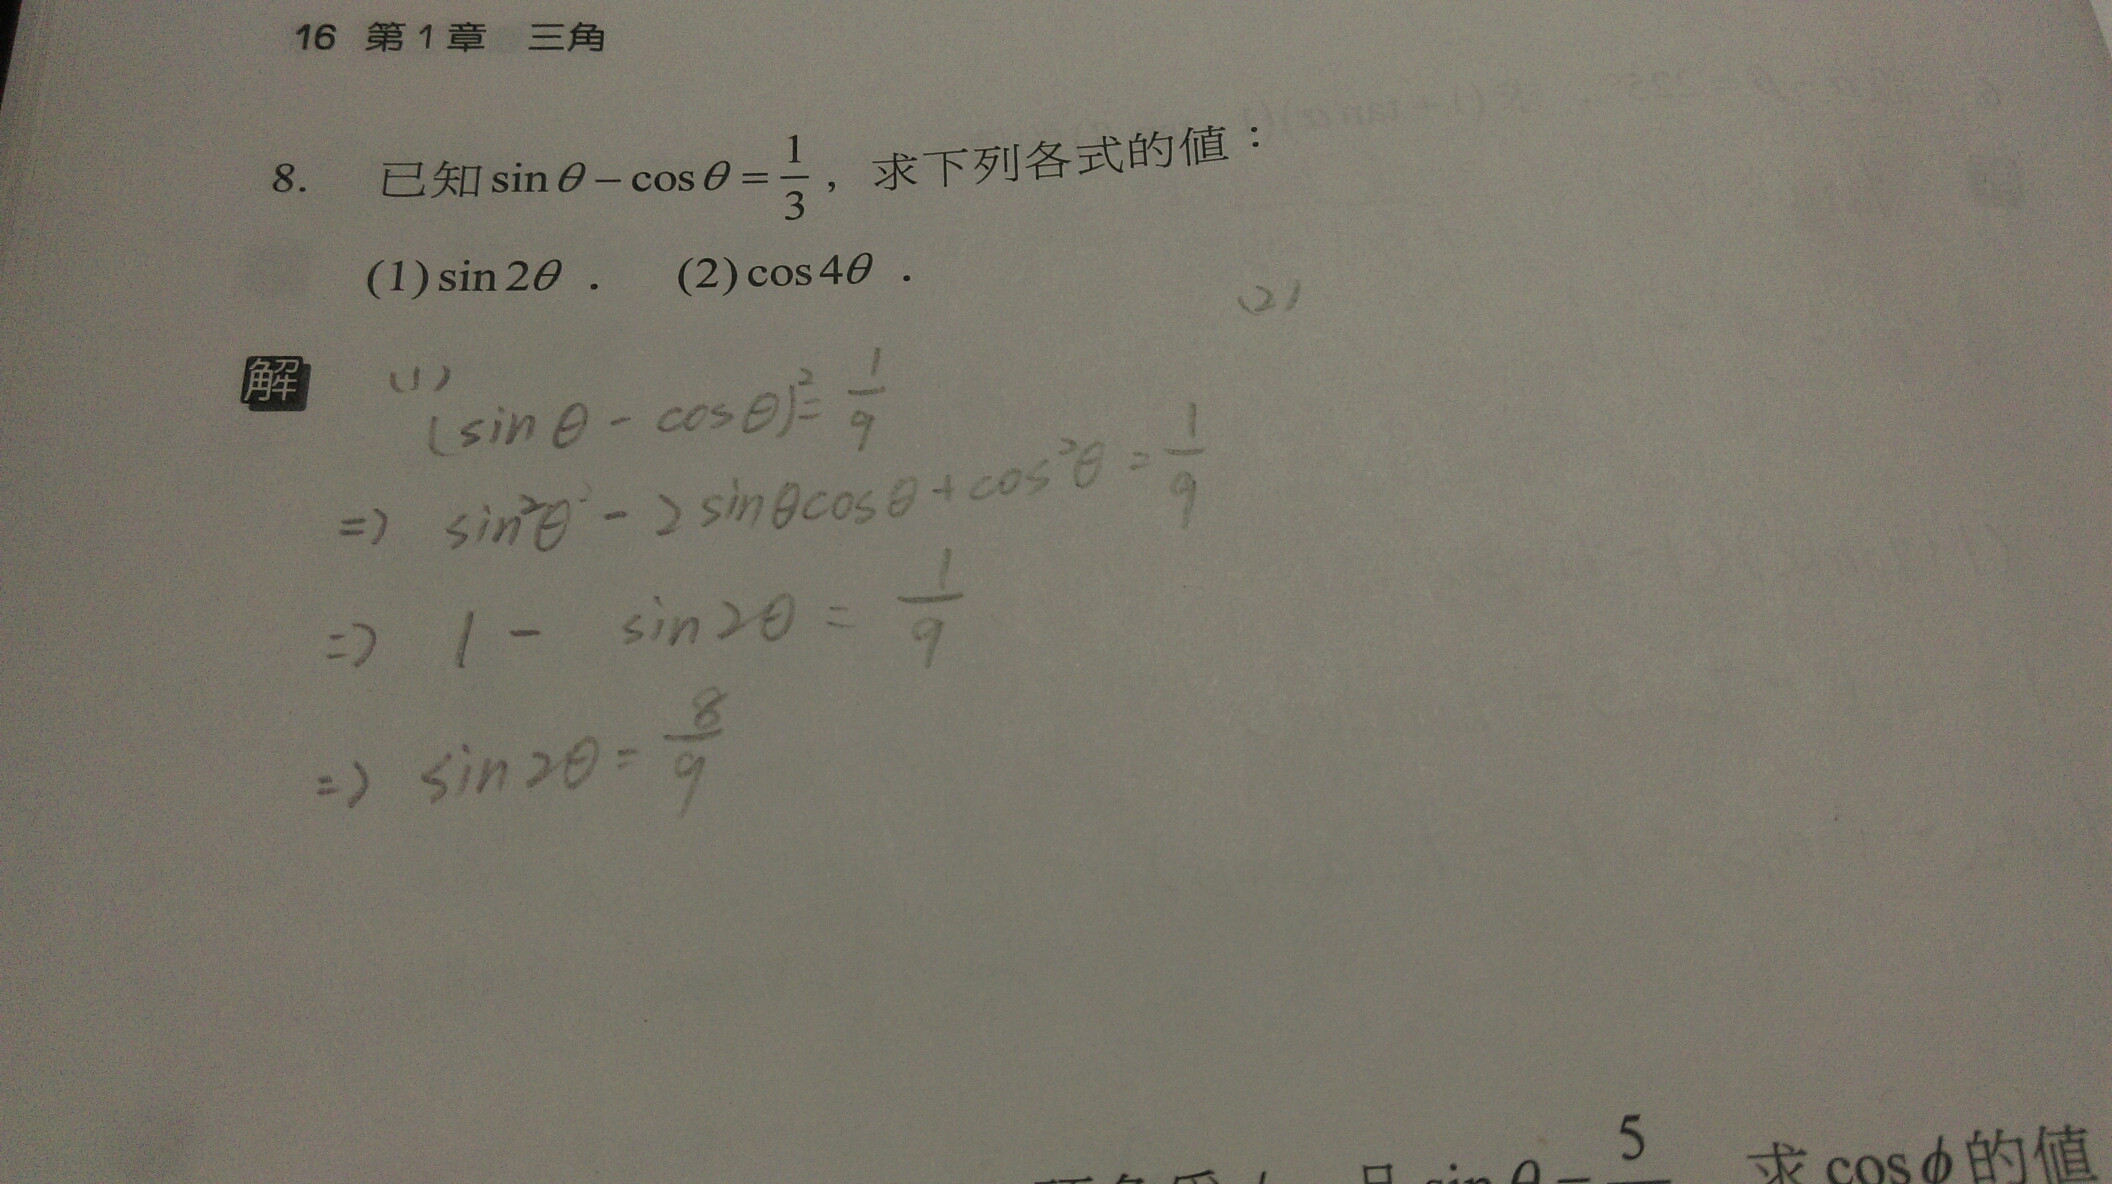 16 第1章 三角
8. 已知 sinθ − cosθ = 1/3, 求下列各式的值：
(1) sin 2θ . (2) cos 4θ .
(2)
解 (1)
(sin θ - cos θ)² = 1/9
=> sin²θ - 2 sinθcosθ + cos²θ = 1/9
=> 1 - sin2θ = 1/9
=> sin2θ = 8/9
5
求 cosϕ 的值